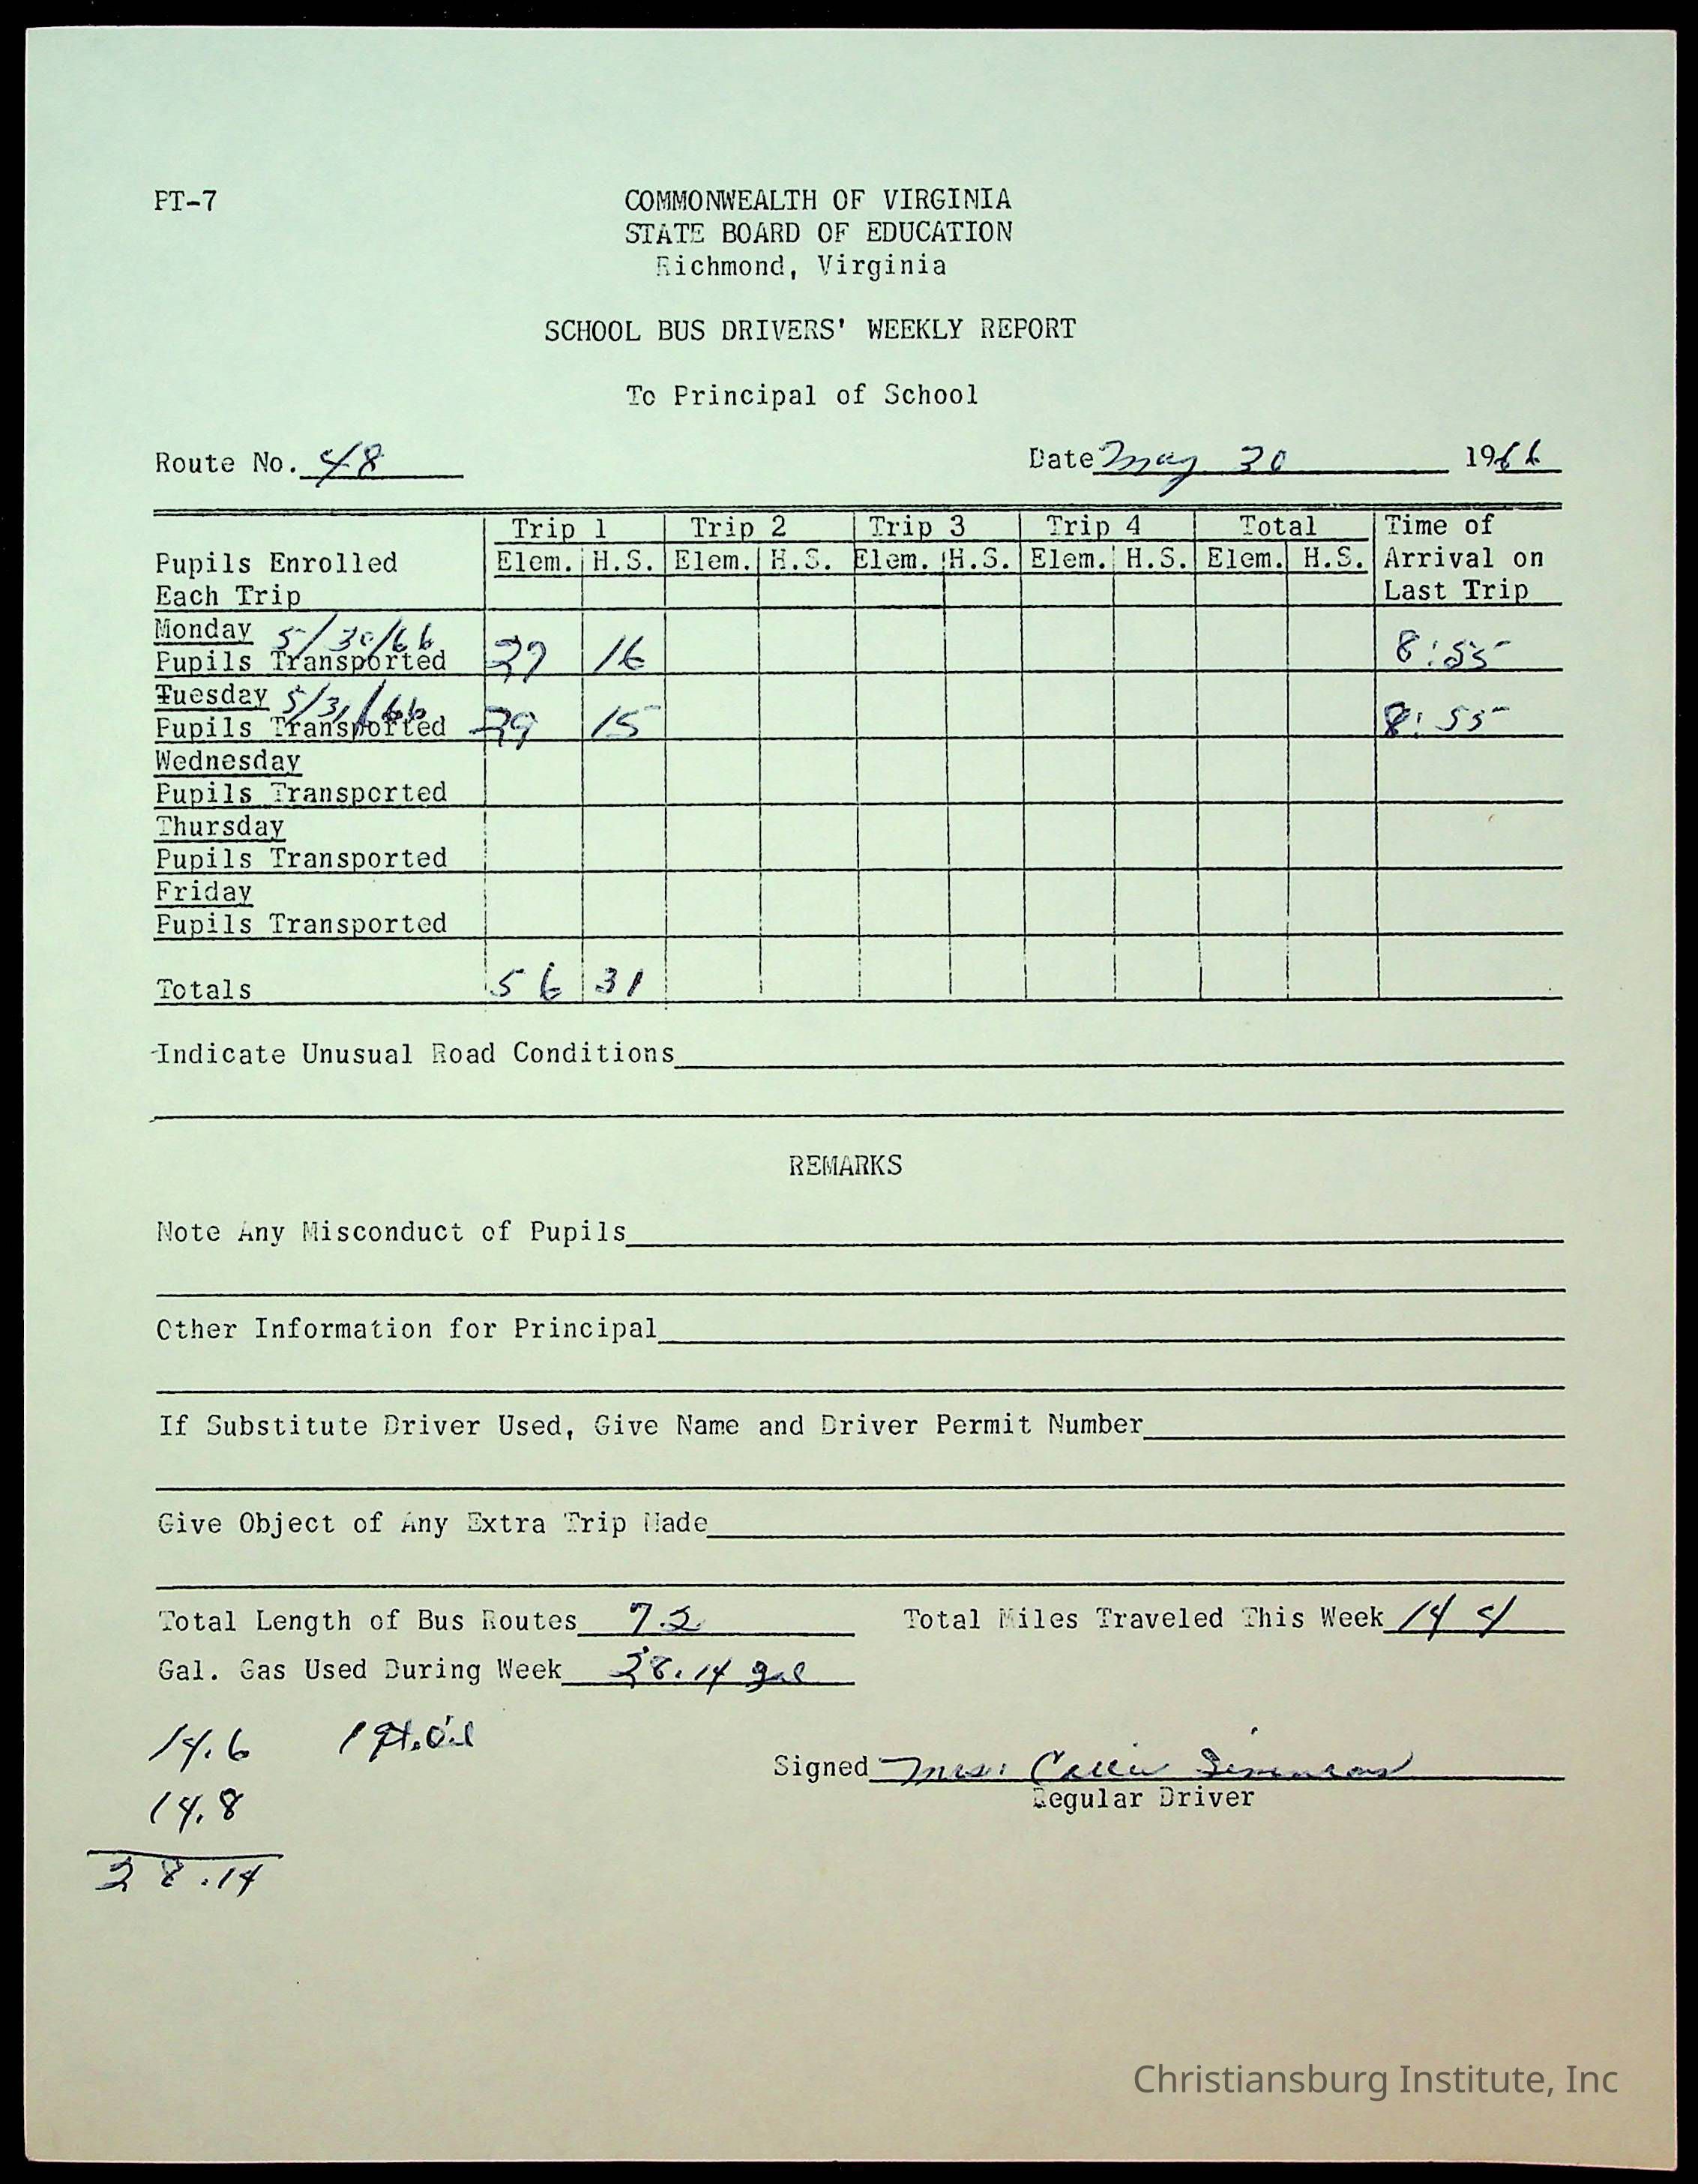 PT-7
COMMONWEALTH OF VIRGINIA
STATE BOARD OF EDUCATION
Richmond, Virginia
SCHOOL BUS DRIVERS' WEEKLY REPORT
To Principal of School
Route No. 48 Date May 30 1966
Trip 1 Trip 2 Trip 3 Trip 4 Total Time of
Pupils Enrolled Elem. H.S. Elem. H.S. Elem. H.S. Elem. H.S. Elem. H.S. Arrival on
Each Trip Last Trip
Monday 5/30/66
Pupils Transported 27 16 8:55
Tuesday 5/31/66
Pupils Transported 29 15 8:55
Wednesday
Pupils Transported
Thursday
Pupils Transported
Friday
Pupils Transported
Totals 56 31
Indicate Unusual Road Conditions
REMARKS
Note Any Misconduct of Pupils
Other Information for Principal
If Substitute Driver Used, Give Name and Driver Permit Number
Give Object of Any Extra Trip Made
Total Length of Bus Routes 72 Total Miles Traveled This Week 144
Gal. Gas Used During Week 28.14 gal
14.6 1 qt. Oil
14.8
28.14
Signed Mrs. Callie
Regular Driver
Christiansburg Institute, Inc